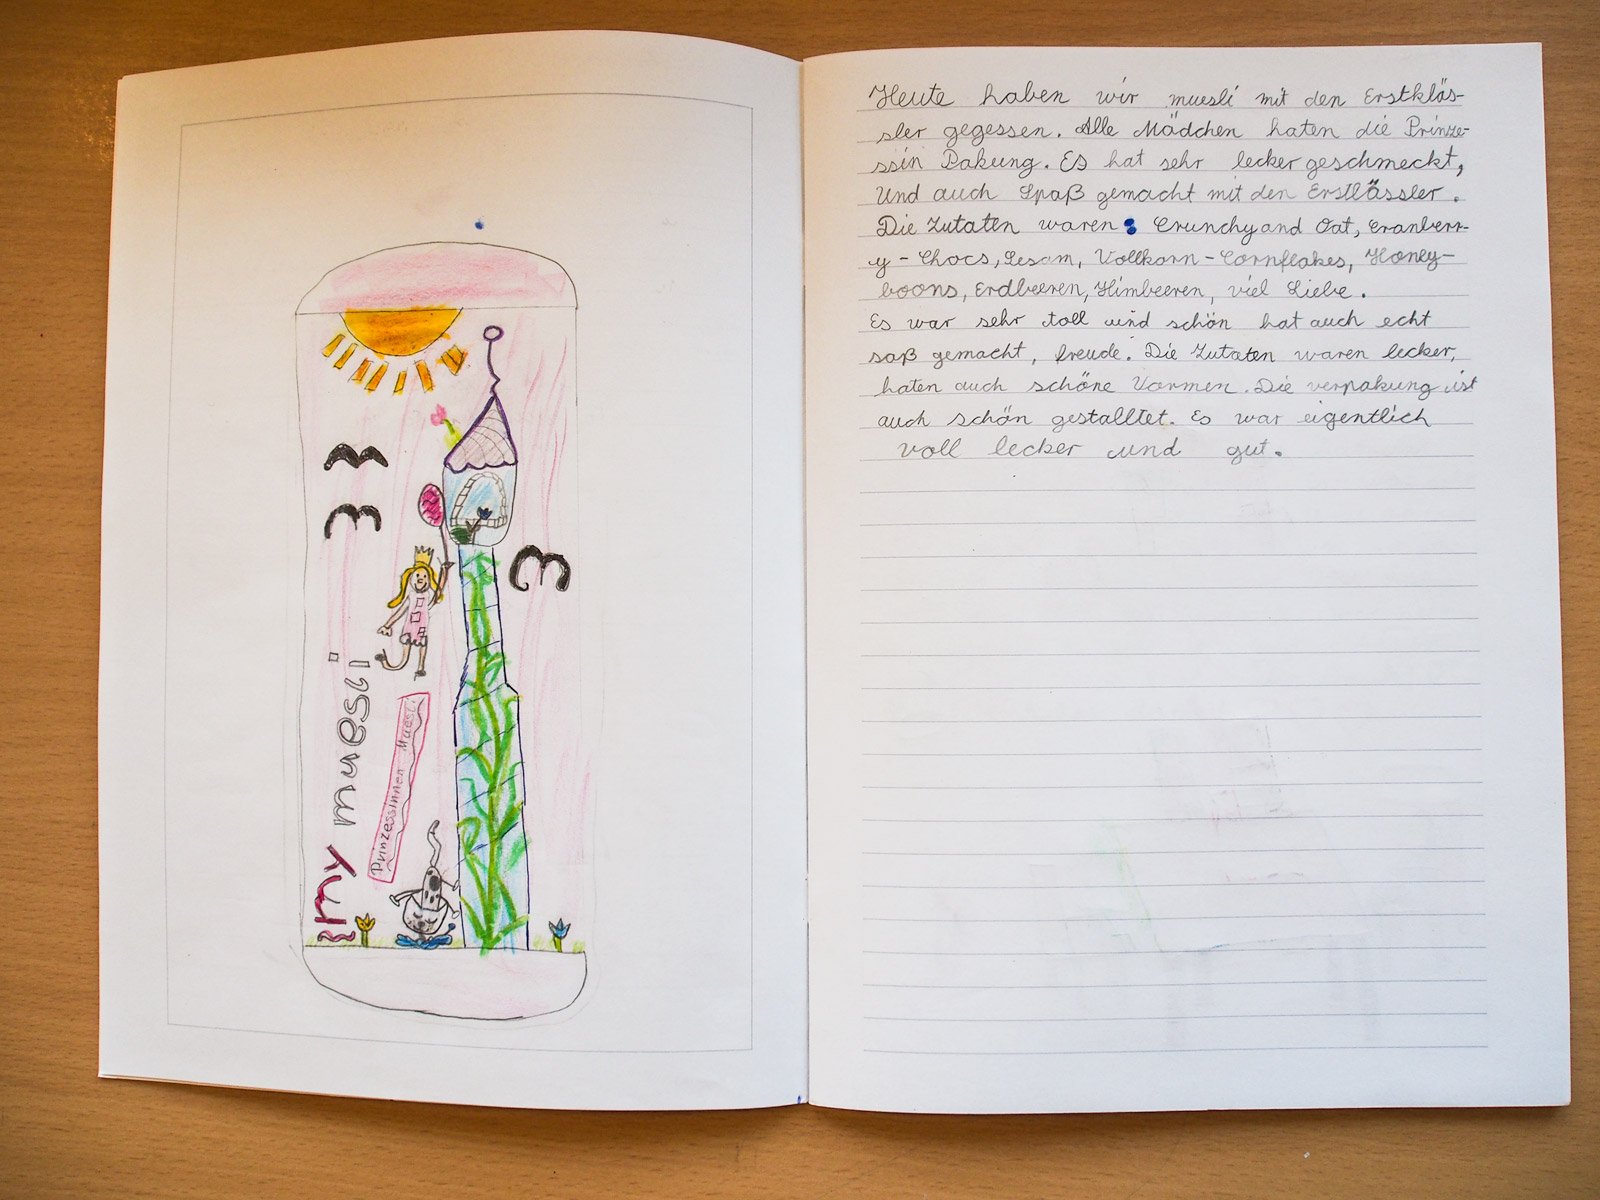 my muesli
Prinzessinnen Muesli
Heute haben wir muesli mit den Erstkläs-
sler gegessen. Alle Mädchen haten die Prinze-
ssin Pakung. Es hat sehr lecker geschmeckt,
Und auch Spaß gemacht mit den Erstlässler.
Die Zutaten waren: Crunchy and Oat, Cranberr-
y-Chocs, Sesam, Vollkorn-Cornflakes, Honey-
boons, Erdbeeren, Himbeeren, viel Liebe.
Es war sehr toll und schön hat auch echt
saß gemacht, freude. Die Zutaten waren lecker,
haten auch schöne Vormen. Die verpakung ist
auch schön gestalltet. Es war eigentlich
voll lecker und gut.